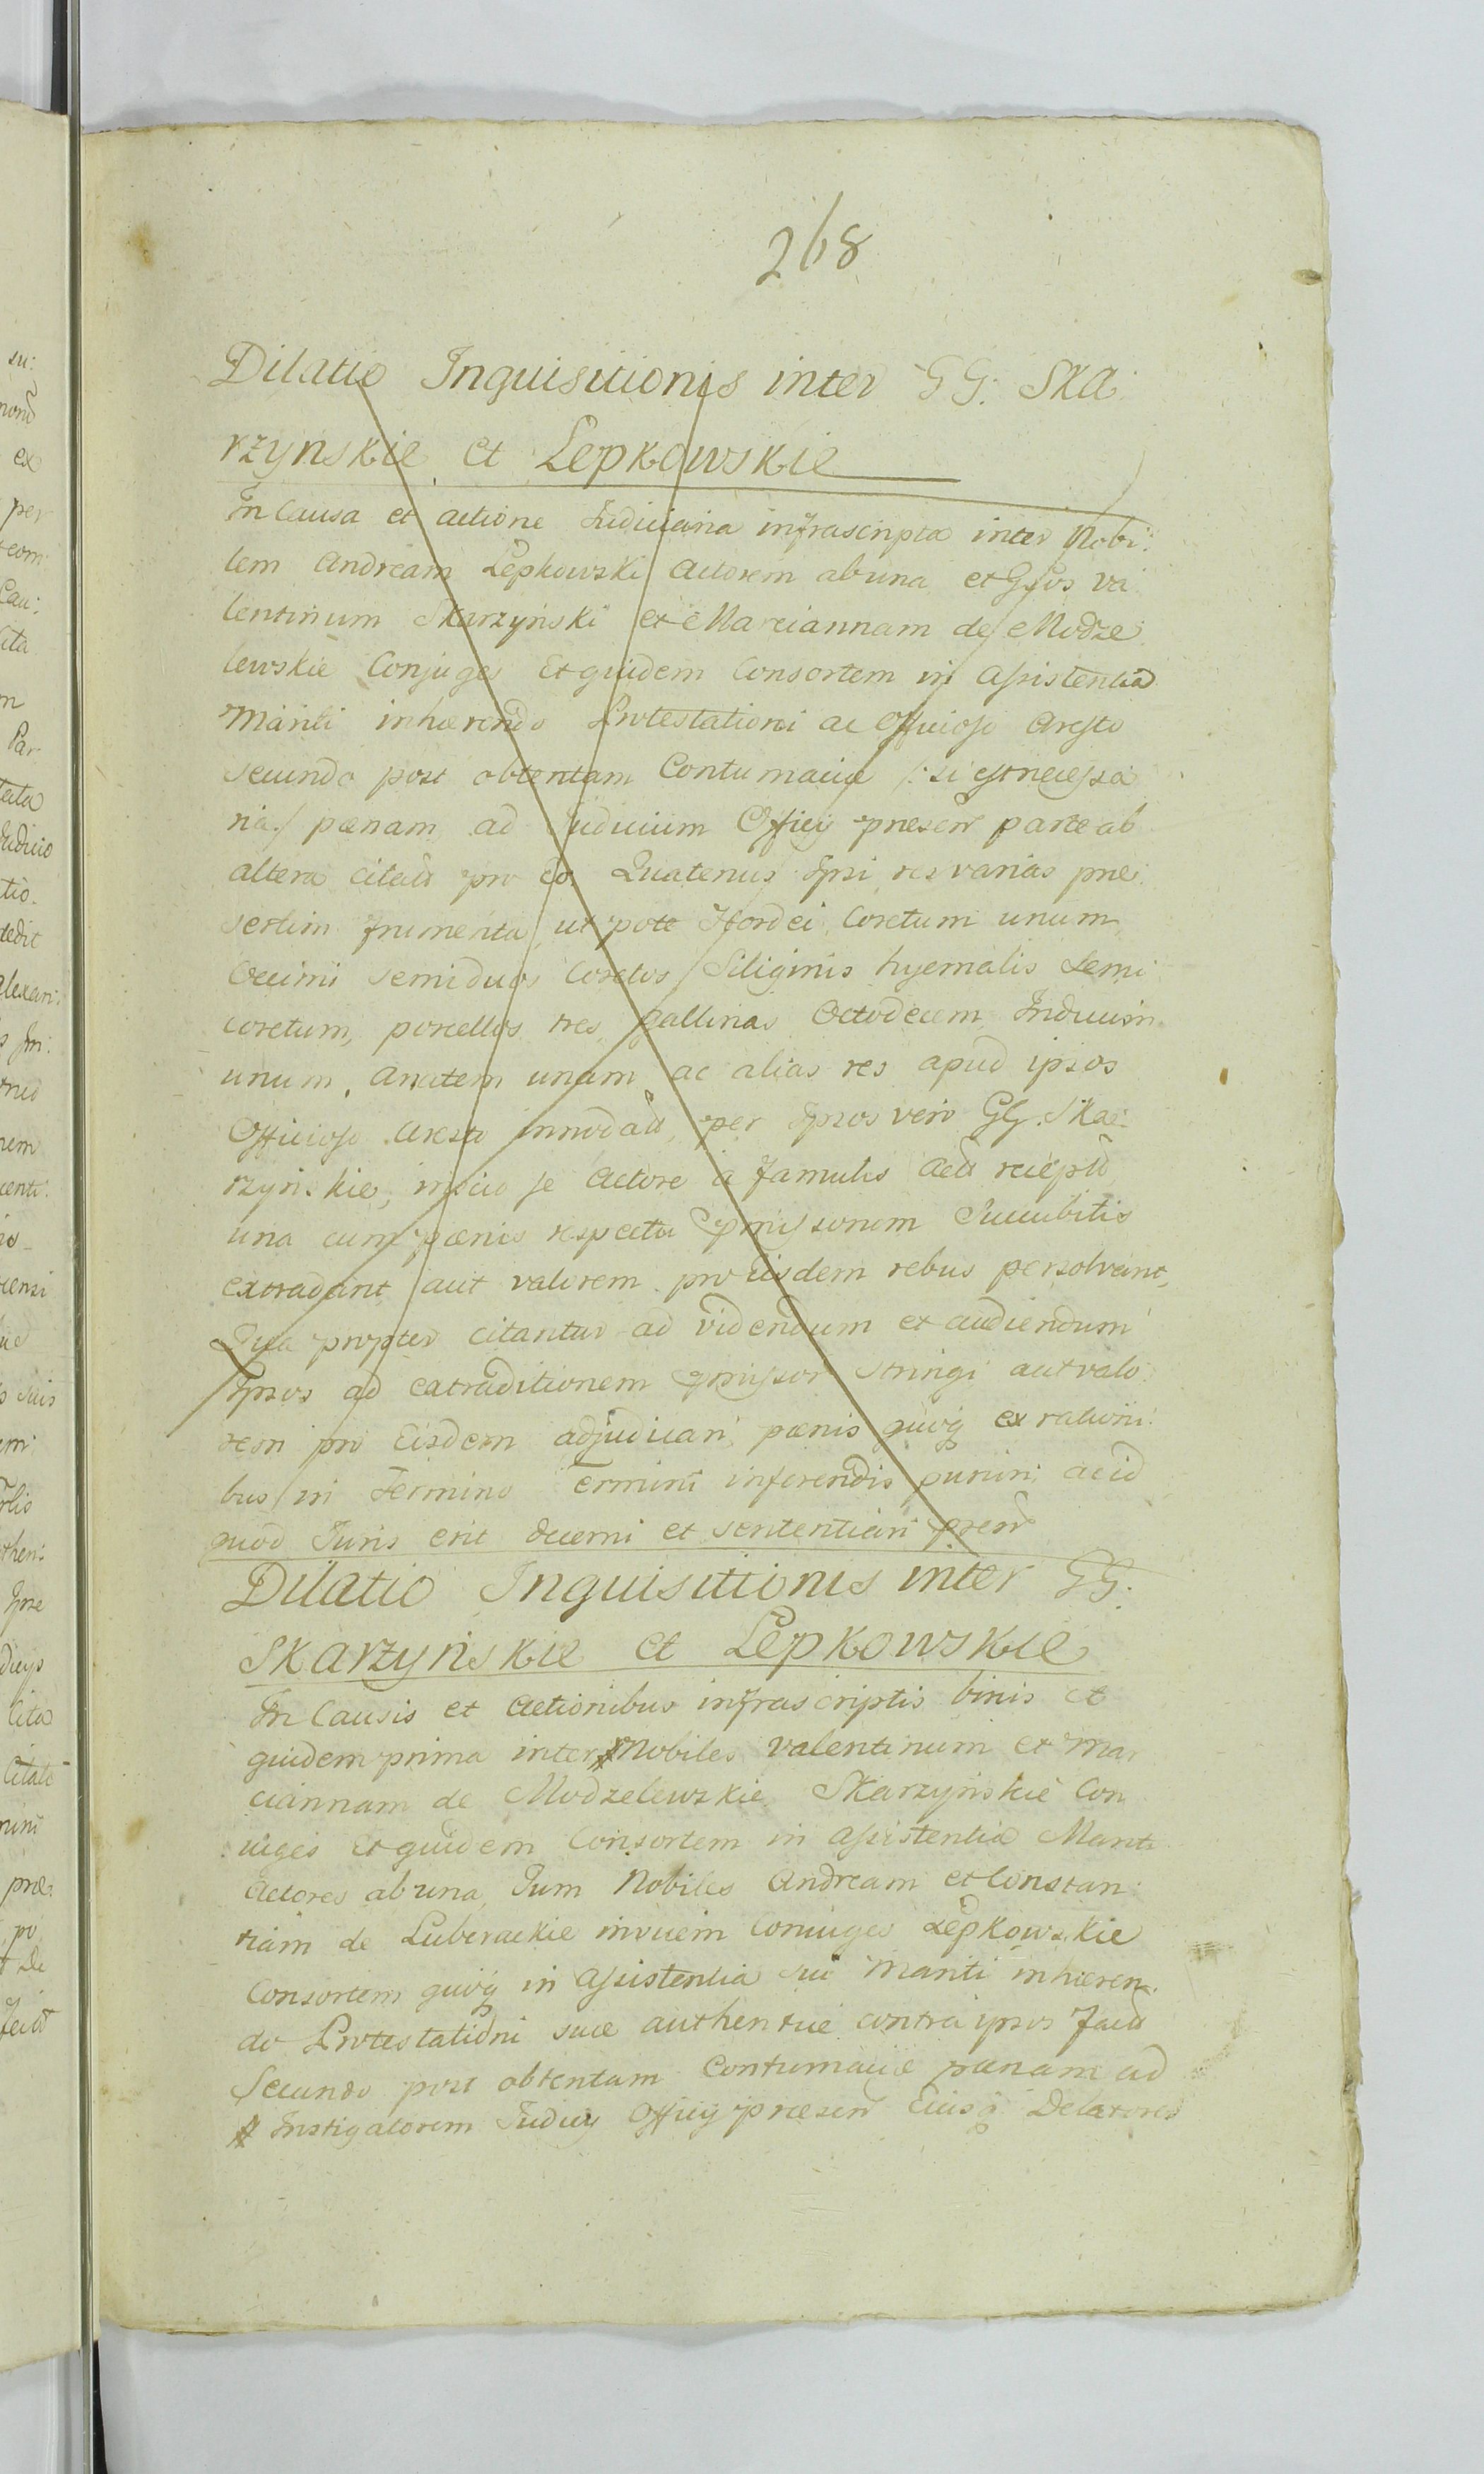 268
Dilatio Inquisitionis inter GG: Ska:
rzynskie et Lepkowskie
In Causa et actione Judiciaria infrascripta inter Nobi:
lem Andream Lepkowski Actorem ab una et Gsos Va
lentinum Skarzyński et Marciannam de Modze:
lewskie Conjuges Et quidem Consortem in Assistentia
Mariti inhærendo Protestationi ac Officioso Aresto
secundo post obtentam Contumaciæ /: si est necessa
ria :/ pænam ad Judicium Officij præsen parte ab
altera citatos pro eo Quatenus Ipsi res varias præ:
sertim frumenta, ut pote Hordei Coretum unum
Cicimi semiduos Coretos Siliginis hyemalis Semi
coretum, porcellos tres, gallinas Octodecem Inducum
unum, Anatem unam ac alias res apud ipsos
Officioso Aresto innodatt, per Ipsos vero GG. Ska:
rzynskie, inscio se Actore a famulis recept
una cum pænis respectu pmissorum Succubitis
extradant aut valorem pro iisdem rebus persolvant,
Qua propter citantur ad videndum et audiendum
Ipsos ad extraditionem pmissor stringi aut valo:
rem pro Eisdem adjudicari, pænis quoq ex rationi:
bus in Termino Termini inferendis puniri, ac id
quod Juris erit decerni et sententiari præsen
Dilatio Inquisitionis inter GG:
Skarzyńskie et Lepkowskie
In Causis et Actionibus infrascriptis binis et
quidem prima inter # Nobiles Valentinum et Mar
ciannam de Modzelewskie Skarzyńskie Con
iuges Et quidem Consortem in Assistentia Mariti
Actores ab una Tum Nobiles Andream et Constan:
tiam de Luberackie invicem Coniuges Lepkowskie
Consortem quoq in Assistentia sui Mariti inhæren:
do Protestationi suæ authentice contra ipsos Fact
Secundo post obtentam Contumaciæ pænam ad
# Instigatorem Judicij Officij præsen Eiusq Delatores